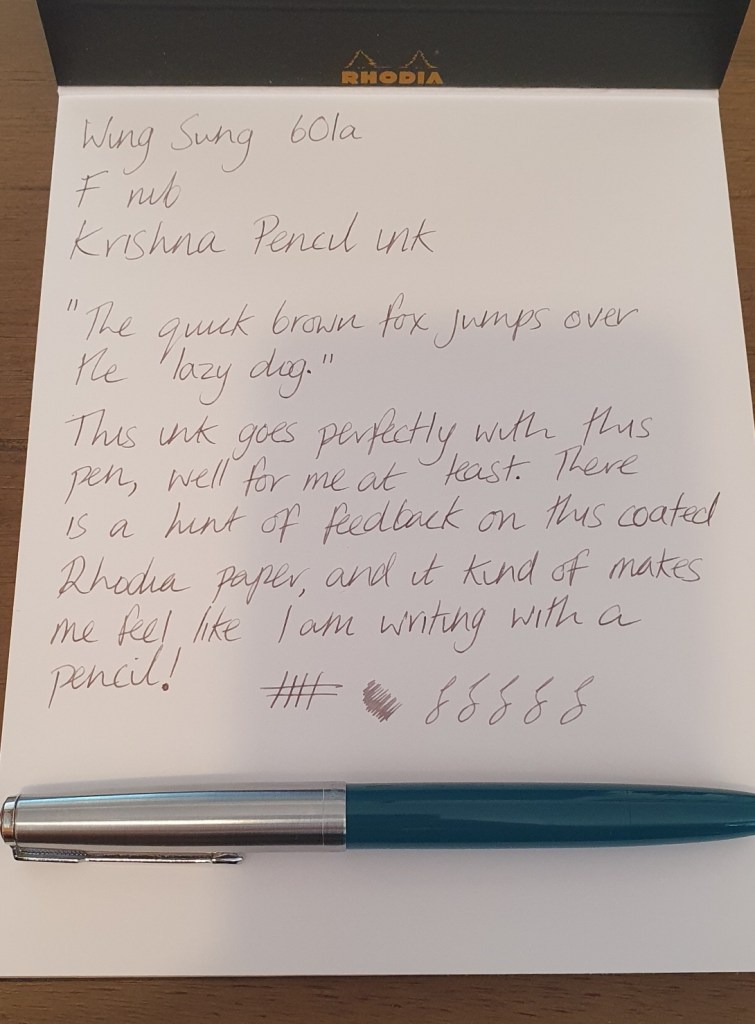 RHODIA
Wing Sung 601a
F nib
Krishna Pencil ink
"The quick brown fox jumps over
the lazy dog."
This ink goes perfectly with this
pen, well for me at least. There
is a hint of feedback on this coated
Rhodia paper, and it kind of makes
me feel like I am writing with a
pencil!